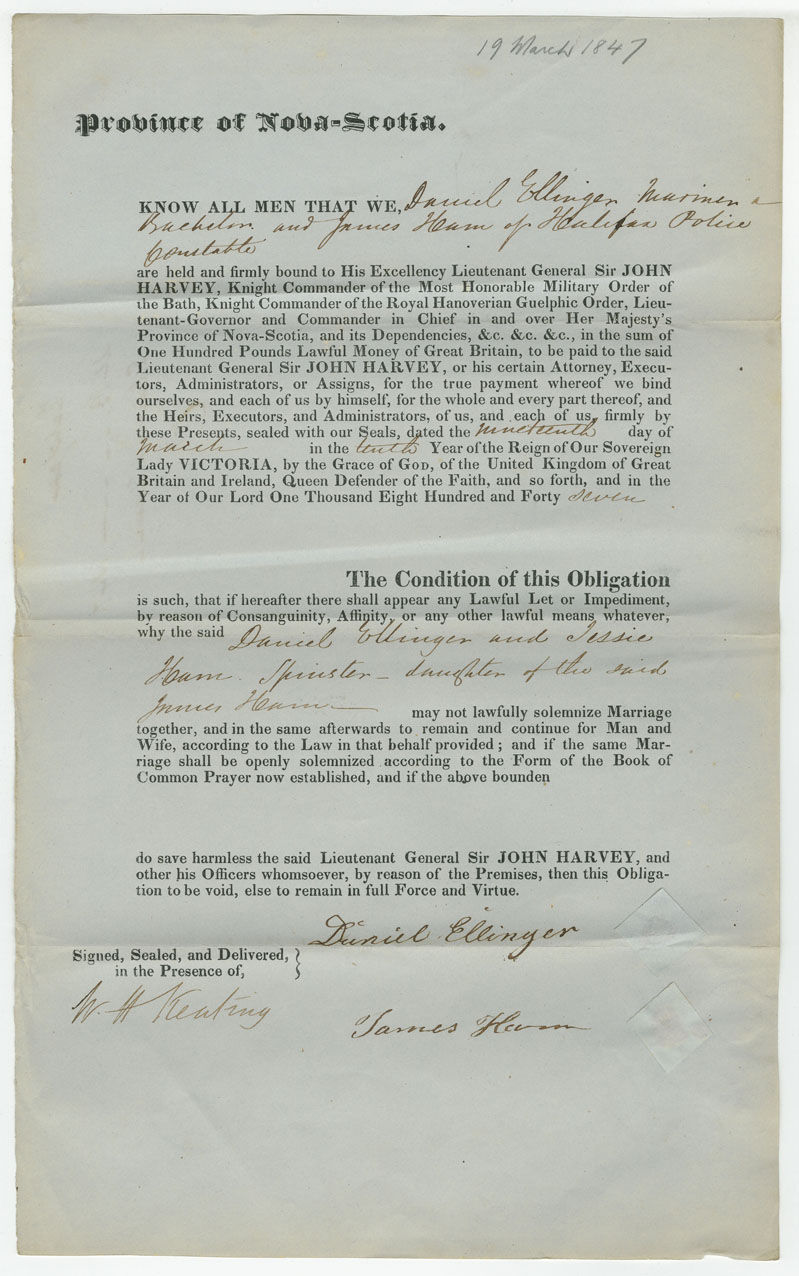 19 March 1847
Province of Nova-Scotia.
KNOW ALL MEN THAT WE, Daniel Ellinger Mariner a
Bachelor and James Ham of Halifax Police
Constable
are held and firmly bound to His Excellency Lieutenant General Sir JOHN
HARVEY, Knight Commander of the Most Honorable Military Order of
the Bath, Knight Commander of the Royal Hanoverian Guelphic Order, Lieu-
tenant-Governor and Commander in Chief in and over Her Majesty's
Province of Nova-Scotia, and its Dependencies, &c. &c. &c., in the sum of
One Hundred Pounds Lawful Money of Great Britain, to be paid to the said
Lieutenant General Sir JOHN HARVEY, or his certain Attorney, Execu-
tors, Administrators, or Assigns, for the true payment whereof we bind
ourselves, and each of us by himself, for the whole and every part thereof, and
the Heirs, Executors, and Administrators, of us, and each of us, firmly by
these Presents, sealed with our Seals, dated the nineteenth day of
March in the tenth Year of the Reign of Our Sovereign
Lady VICTORIA, by the Grace of GOD, of the United Kingdom of Great
Britain and Ireland, Queen Defender of the Faith, and so forth, and in the
Year of Our Lord One Thousand Eight Hundred and Forty seven
The Condition of this Obligation
is such, that if hereafter there shall appear any Lawful Let or Impediment,
by reason of Consanguinity, Affinity, or any other lawful means whatever,
why the said Daniel Ellinger and Jessie
Ham Spinster - daughter of the said
James Ham may not lawfully solemnize Marriage
together, and in the same afterwards to remain and continue for Man and
Wife, according to the Law in that behalf provided; and if the same Mar-
riage shall be openly solemnized according to the Form of the Book of
Common Prayer now established, and if the above bounden
do save harmless the said Lieutenant General Sir JOHN HARVEY, and
other his Officers whomsoever, by reason of the Premises, then this Obliga-
tion to be void, else to remain in full Force and Virtue.
Daniel Ellinger
Signed, Sealed, and Delivered,
in the Presence of,
W. H Keating
James Ham